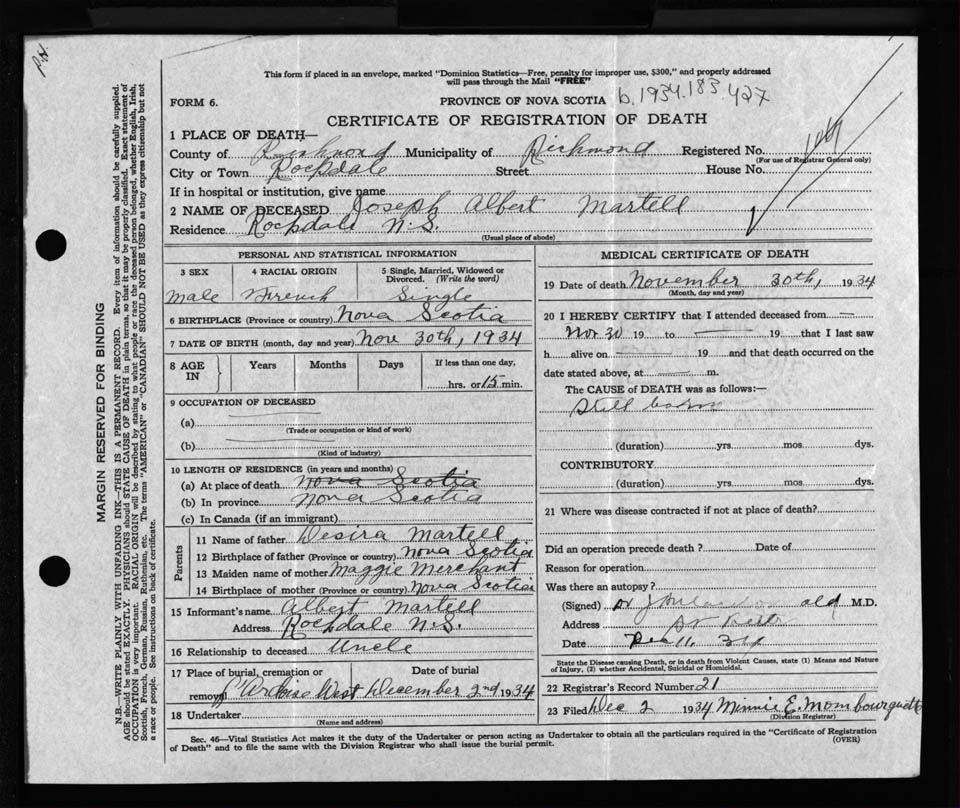 This form if placed in an envelope, marked "Dominion Statistics—Free, penalty for improper use, $300," and properly addressed
will pass through the Mail "FREE"
FORM 6.
PROVINCE OF NOVA SCOTIA b.1934.183.427
CERTIFICATE OF REGISTRATION OF DEATH
1 PLACE OF DEATH—
County of Richmond Municipality of Richmond Registered No.
(For use of Registrar General only)
City or Town Rockdale Street House No.
If in hospital or institution, give name
2 NAME OF DECEASED Joseph Albert Martell
Residence Rockdale N.S.
(Usual place of abode)
PERSONAL AND STATISTICAL INFORMATION
3 SEX 4 RACIAL ORIGIN 5 Single, Married, Widowed or
Divorced. (Write the word)
male French Single
6 BIRTHPLACE (Province or country) Nova Scotia
7 DATE OF BIRTH (month, day and year) Nov 30th, 1934
8 AGE
IN
Years Months Days If less than one day,
hrs. or 15 min.
9 OCCUPATION OF DECEASED
(a)
(Trade or occupation or kind of work)
(b)
(Kind of industry)
10 LENGTH OF RESIDENCE (in years and months)
(a) At place of death Nova Scotia
(b) In province Nova Scotia
(c) In Canada (if an immigrant)
Parents
11 Name of father Desira Martell
12 Birthplace of father (Province or country) Nova Scotia
13 Maiden name of mother Maggie Merchant
14 Birthplace of mother (Province or country) Nova Scotia
15 Informant's name Albert Martell
Address Rockdale N.S.
16 Relationship to deceased Uncle
17 Place of burial, cremation or Date of burial
removal West December 2nd, 1934
18 Undertaker
(Name and address)
MEDICAL CERTIFICATE OF DEATH
19 Date of death November 30th, 1934
(Month, day and year)
20 I HEREBY CERTIFY that I attended deceased from —
Nov 30 19 to — 19 that I last saw
h alive on — 19 and that death occurred on the
date stated above, at — m.
The CAUSE of DEATH was as follows:—
Still born
(duration) yrs mos dys.
CONTRIBUTORY
(duration) yrs. mos. dys.
21 Where was disease contracted if not at place of death?
Did an operation precede death? Date of
Reason for operation
Was there an autopsy?
(Signed) M.D.
Address
Date Dec 11, 34
State the Disease causing Death, or in death from Violent Causes, state (1) Means and Nature
of Injury, (2) whether Accidental, Suicidal or Homicidal.
22 Registrar's Record Number 21
23 Filed Dec 2 1934 Minnie E. Mombourquette
(Division Registrar)
Sec. 46—Vital Statistics Act makes it the duty of the Undertaker or person acting as Undertaker to obtain all the particulars required in the "Certificate of Registration
of Death" and to file the same with the Division Registrar who shall issue the burial permit. (OVER)
MARGIN RESERVED FOR BINDING
N.B.—WRITE PLAINLY WITH UNFADING INK—THIS IS A PERMANENT RECORD. Every item of information should be carefully supplied.
AGE should be stated EXACTLY. PHYSICIANS should STATE CAUSE OF DEATH in plain terms, so that it may be properly classified. Exact statement of
OCCUPATION is very important. RACIAL ORIGIN will be described by stating to what people or race the deceased person belonged, whether English, Irish,
Scottish, French, German, Russian, Ruthenian, etc. The terms "AMERICAN" or "CANADIAN" SHOULD NOT BE USED as they express citizenship but not
a race or people. See instructions on back of certificate.